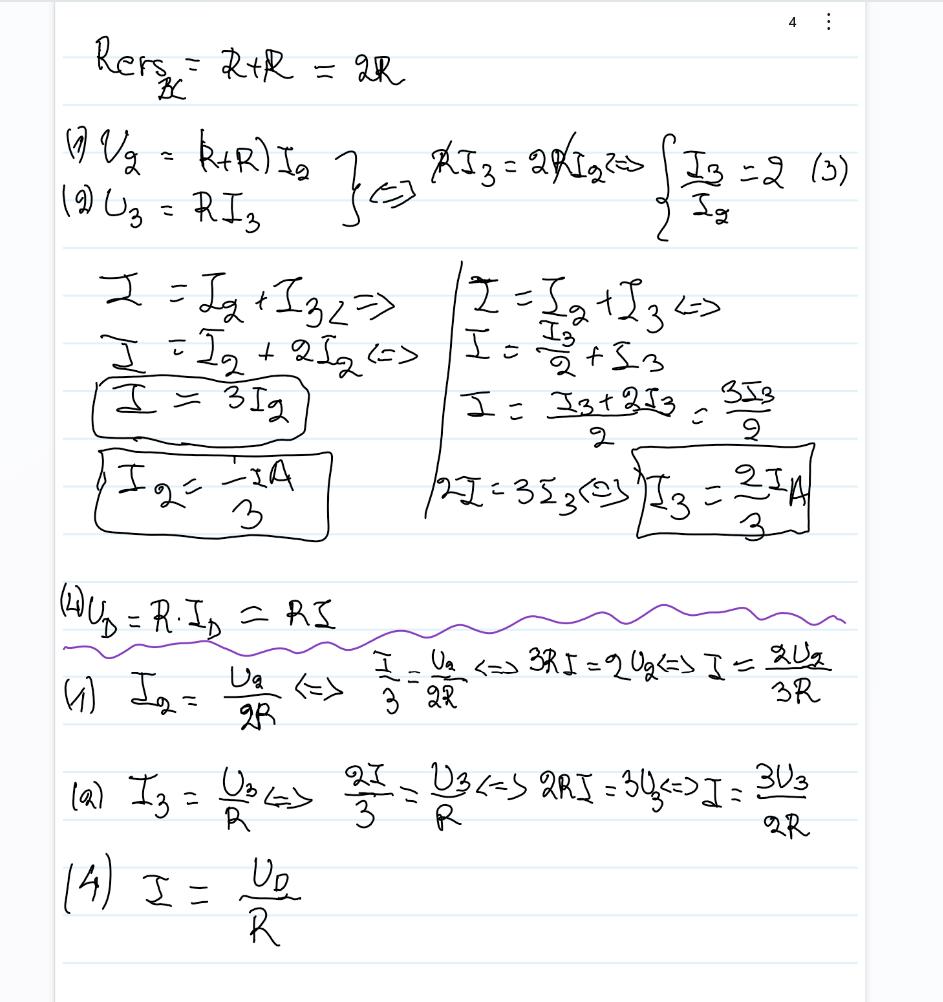 4
Rers_BC = R+R = 2R
(1) U₂ = (R+R)I₂ } <=> RI₃ = 2RI₂ <=> { I₃/I₂ = 2 (3)
(2) U₃ = RI₃
I = I₂ + I₃ <=>
I = I₂ + 2I₂ <=>
I = 3I₂
I₂ = I A/3
I = I₂ + I₃ <=>
I = I₃/2 + I₃
I = (I₃+2I₃)/2 = 3I₃/2
2I = 3I₃ <=> I₃ = 2I/3 A
(4) U_D = R·I_D = RI
(1) I₂ = U₂/2R <=> I/3 = U₂/2R <=> 3RI = 2U₂ <=> I = 2U₂/3R
(2) I₃ = U₃/R <=> 2I/3 = U₃/R <=> 2RI = 3U₃ <=> I = 3U₃/2R
(4) I = U_D/R